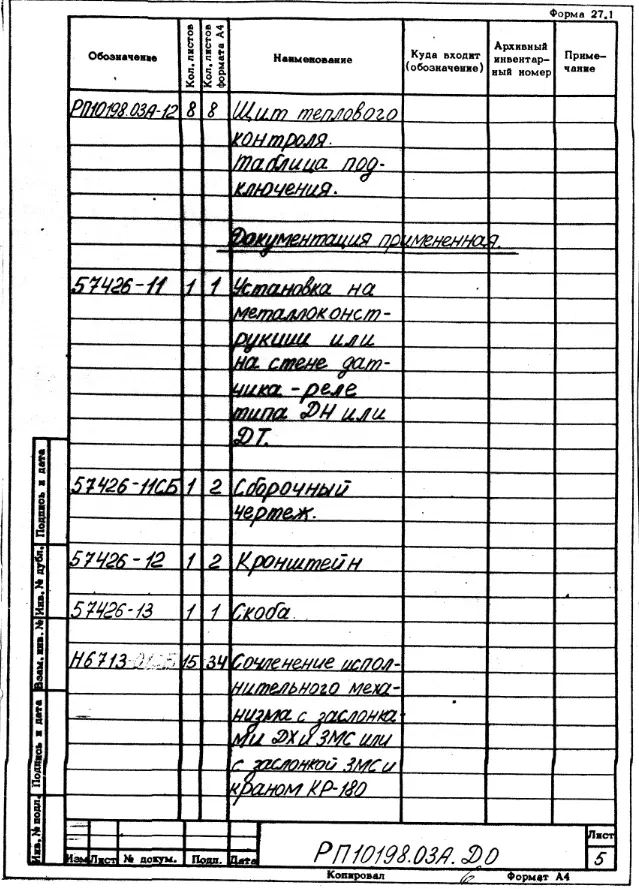 Форма 27.1
Обозначение
Кол. листов
Кол. листов формата А4
Наименование
Куда входит (обозначение)
Архивный инвентар-ный номер
Приме-чание
РП10198.03А-12 8 8 Щит теплового
контроля.
Таблица под-
ключения.
Документация примененная.
57426-11 1 1 Установка на
металлоконст-
рукции или
на стене дат-
чика-реле
типа ДН или
ДТ.
57426-11СБ 1 2 Сборочный
чертеж.
57426-12 1 2 Кронштейн
57426-13 1 1 Скоба
Н6713 15 34 Сочленение испол-
нительного меха-
низма с заслонка-
ми ДХ и ЗМС или
с заслонкой ЗМС и
краном КР-180
Инв. № подл. Подпись и дата Взам. инв. № Инв. № дубл. Подпись и дата
Изм Лист № докум. Подп. Дата
РП10198.03А.ДО
Лист
5
Копировал
Формат А4